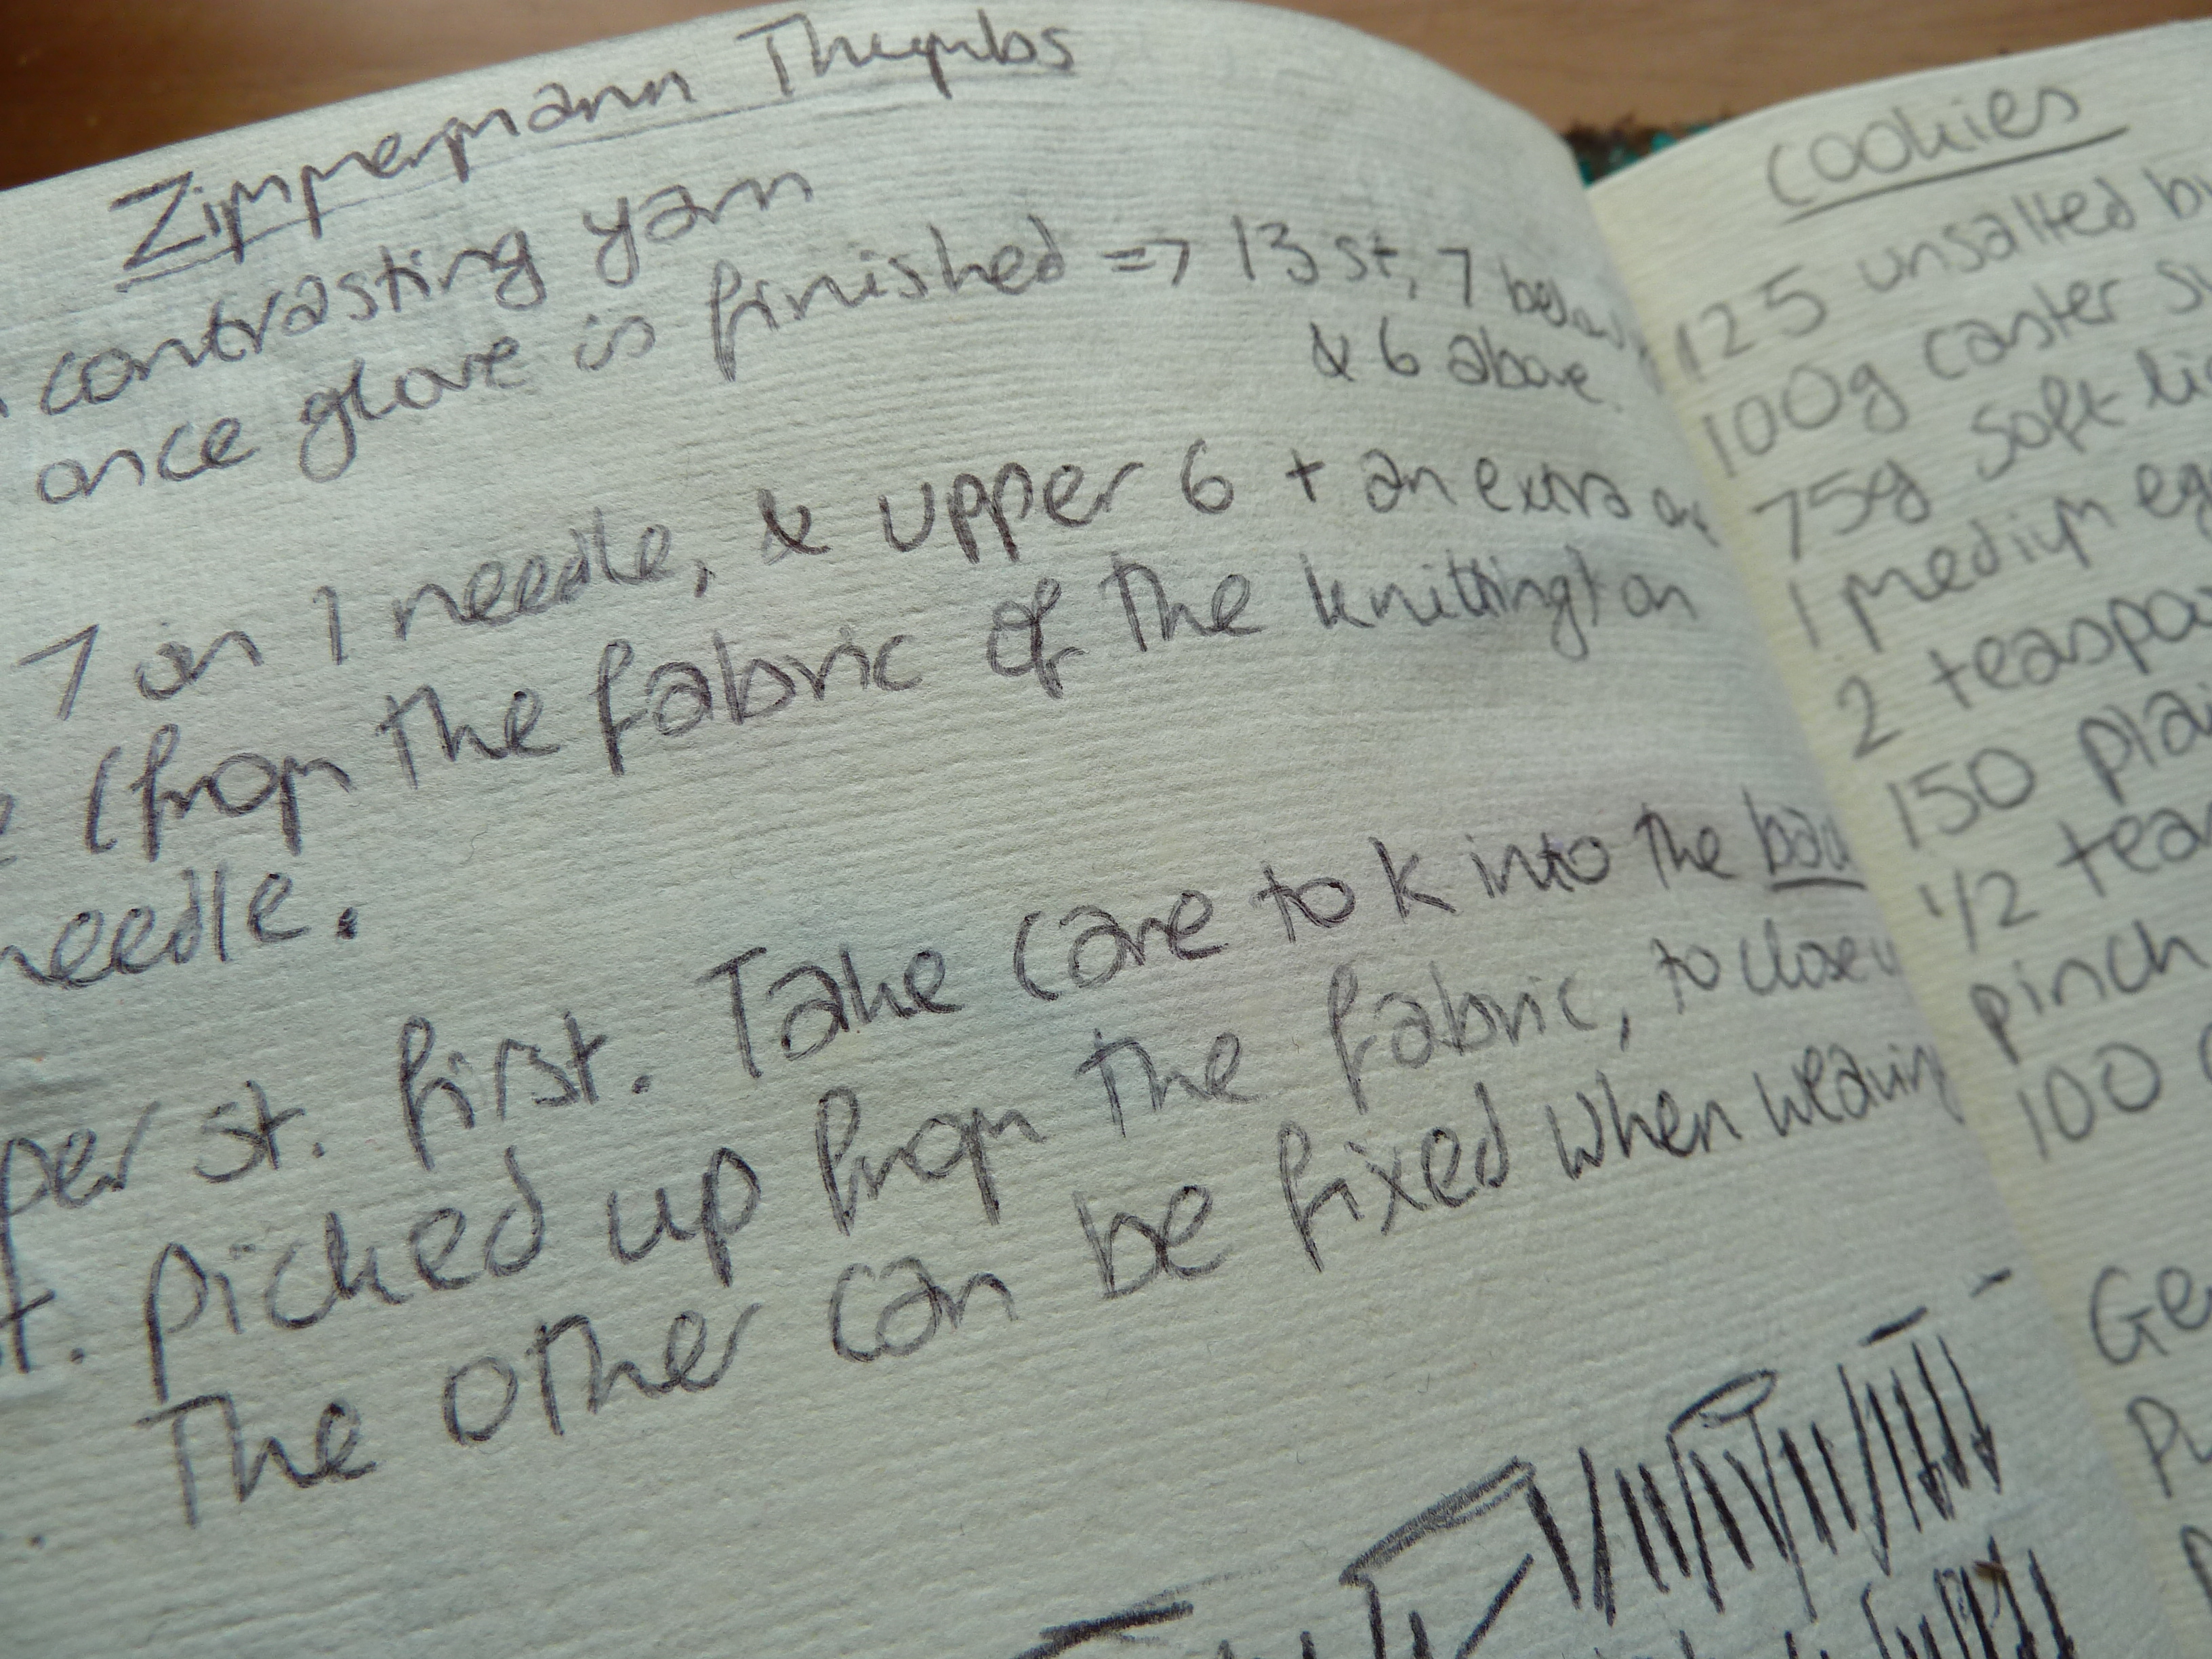 Zimmermann Thumbs
contrasting yarn
once glove is finished => 13 st, 7 below
& 6 above
7 on 1 needle, & upper 6 + an extra
(from the fabric of the knitting) on
needle.
per st. first. Take care to k into the
st. picked up from the fabric, to close
The other can be fixed when weaving
Cookies
125 unsalted
100g caster
75g soft
1 medium
2
150
1/2
pinch
100